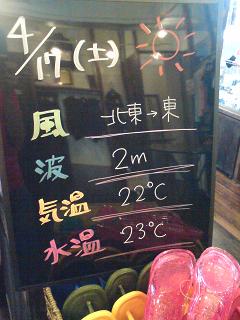 4/17(土)
風 北東→東
波 2m
気温 22℃
水温 23℃